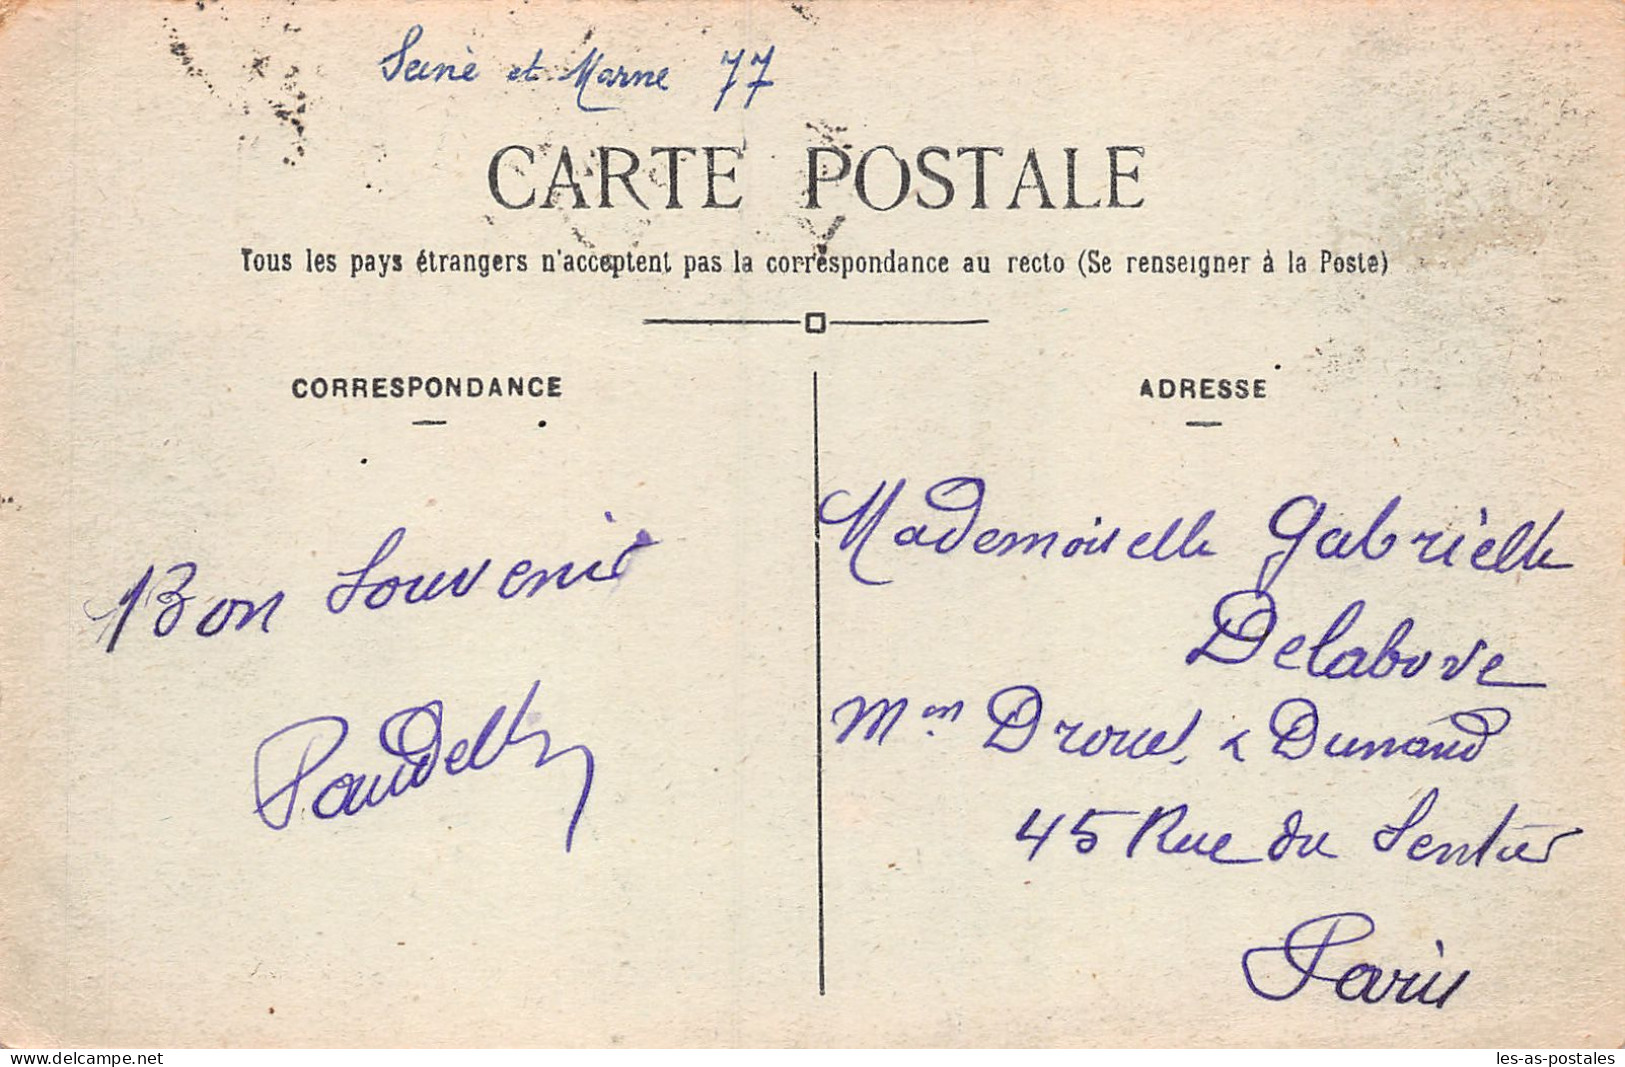 Seine et Marne 77
CARTE POSTALE
Tous les pays étrangers n'acceptent pas la correspondance au recto (Se renseigner à la Poste)
CORRESPONDANCE
ADRESSE
Bon Souvenir
Mademoiselle Gabrielle
Delabove
Mon Drouet & Dunand
45 Rue du Sentier
Paris
delcampe.net
les-as-postales